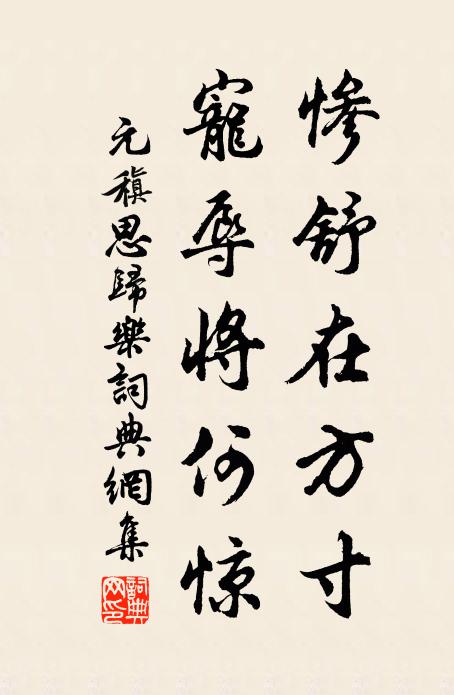 惨舒在方寸
寵辱將何惊
元稹思歸樂詞典網集
詞典网印